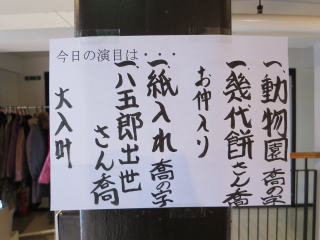 今日の演目は・・・
一、動物園 喬の字
一、幾代餅 さん喬
お仲入り
一、紙入れ 喬の字
一、八五郎出世 さん喬
大入叶